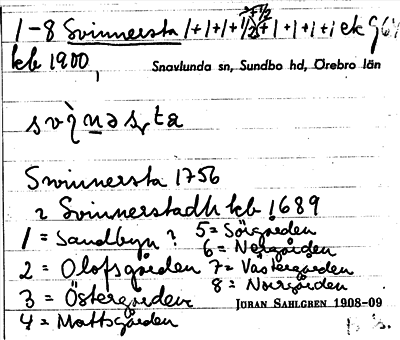 1-8 Svinnersta 1/1+1/1+1/1+ 1/2 +1+1+1+1 ek G64
kb 1900,
Snavlunda sn, Sundbo hd, Örebro län
svìnəsta
Svinnersta 1756
2 Svinnerstadh kb 1689
1 = Sandbyn? 5 = Sörgården
6 = Norgården
2 = Olofsgården 7 = Västergården
8 = Norrgården
3 = Östergården
JÖRAN SAHLGREN 1908-09
4 = Mattsgården